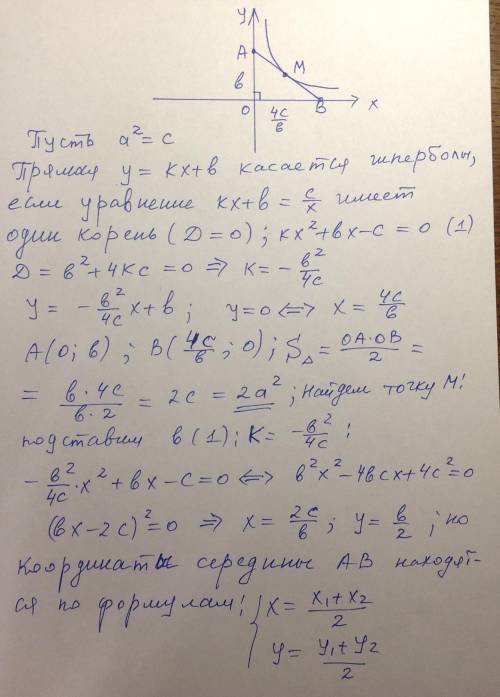 y
A
M
в
0
4c/в
B
x
Пусть a² = c
Прямая y = kx+в касается гиперболы,
если уравнение kx+в = c/x имеет
один корень (D=0); kx²+вx-c=0 (1)
D = в²+4kc = 0 ⇒ k = -в²/4c
y = -в²/4c x+в; y=0 ⟺ x = 4c/в
A(0; в); B(4c/в; 0); S△ = OA·OB/2 =
= в·4c/в·2 = 2c = 2a²; Найдем точку M!
подставим в (1); k = -в²/4c !
-в²/4c·x²+вx-c=0 ⟺ в²x²-4вcx+4c²=0
(вx-2c)²=0 ⇒ x = 2c/в; y = в/2; но
координаты середины AB находят-
ся по формулам! { x = x₁+x₂/2
y = y₁+y₂/2